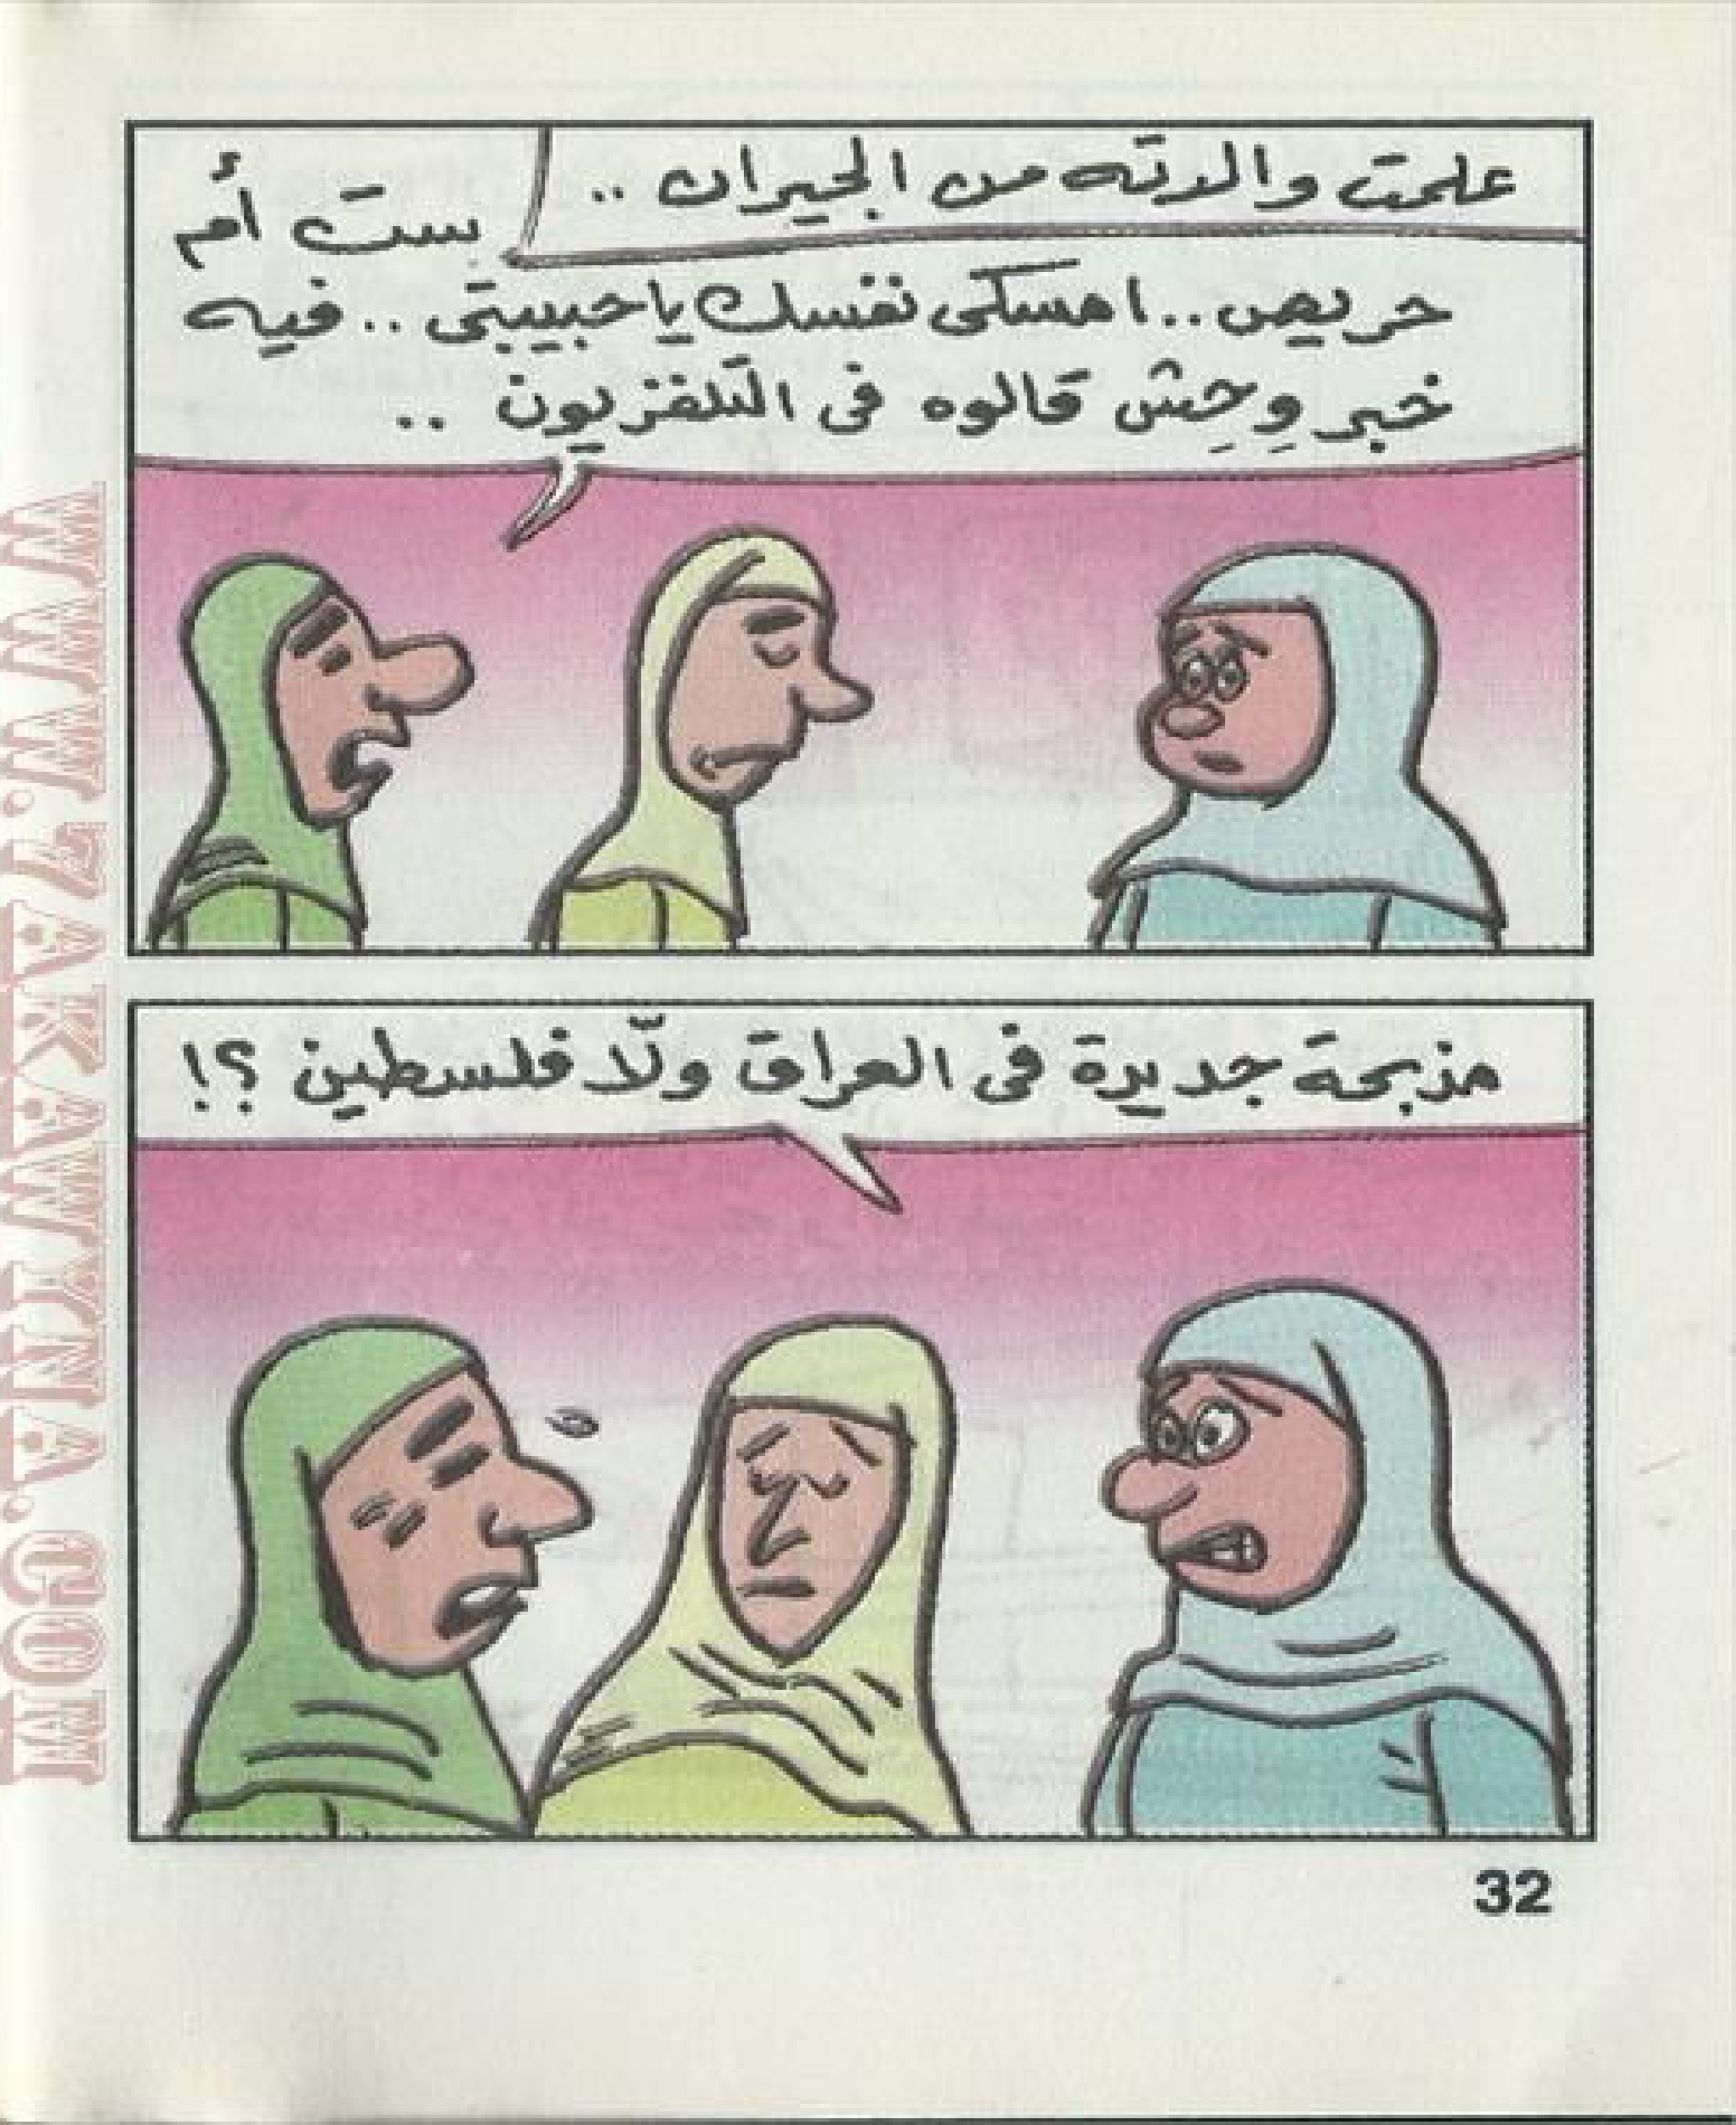 علمت والدته من الجيران ..
ست أم
حريص .. امسكى نفسك ياحبيبتى .. فيه
خبر وِحِش قالوه فى التلفزيون ..
مذبحة جديدة فى العراق ولّا فلسطين ؟!
32
WWW.7AKAWYNA.COM